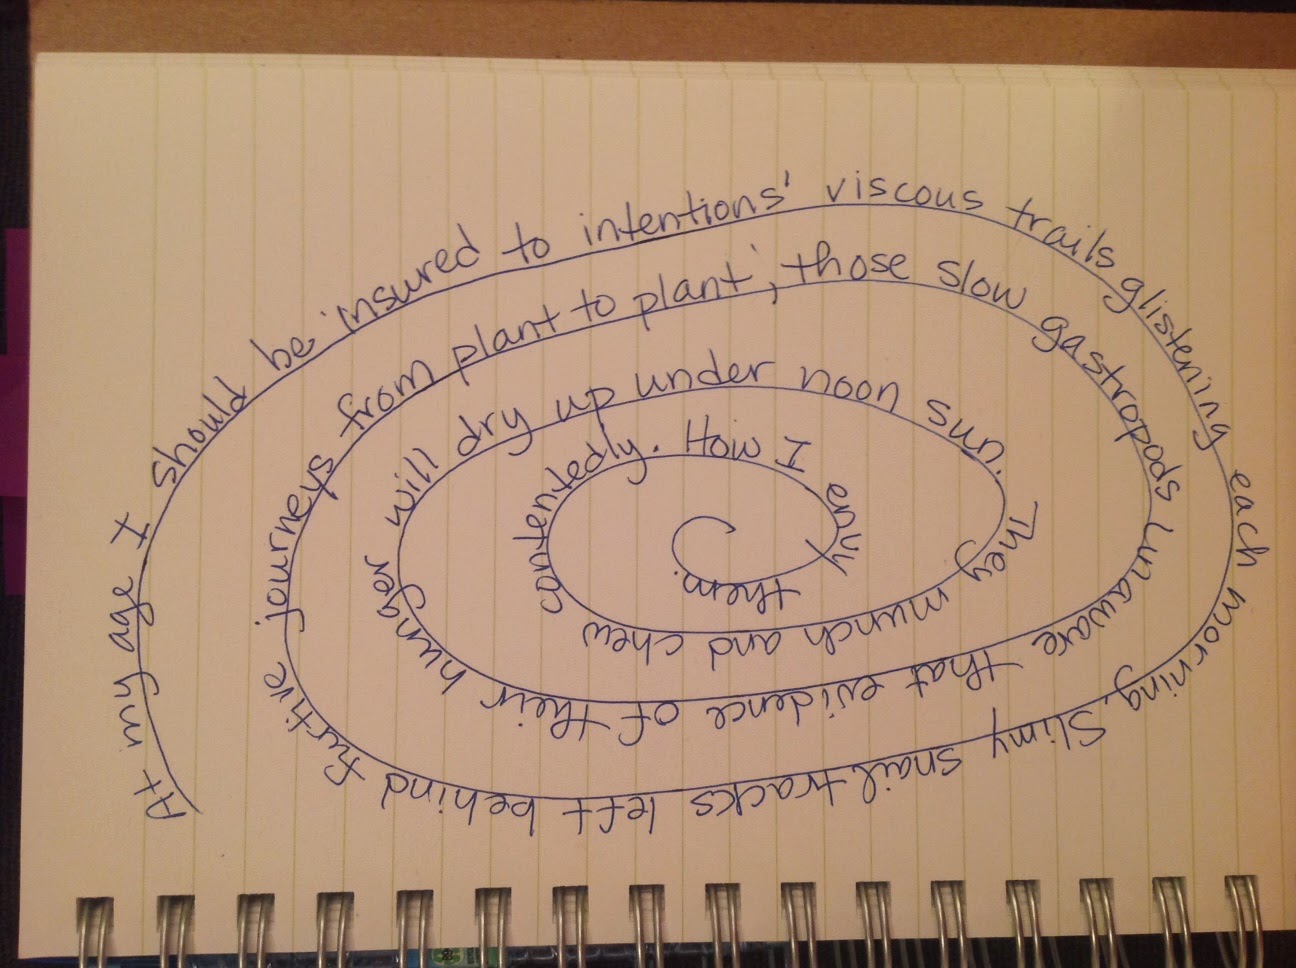 At my age I should be insured to intentions' viscous trails glistening each morning. Slimy snail tracks left behind furtive journeys from plant to plant, those slow gastropods unaware that evidence of their hunger will dry up under noon sun. They munch and chew contentedly. How I envy them.